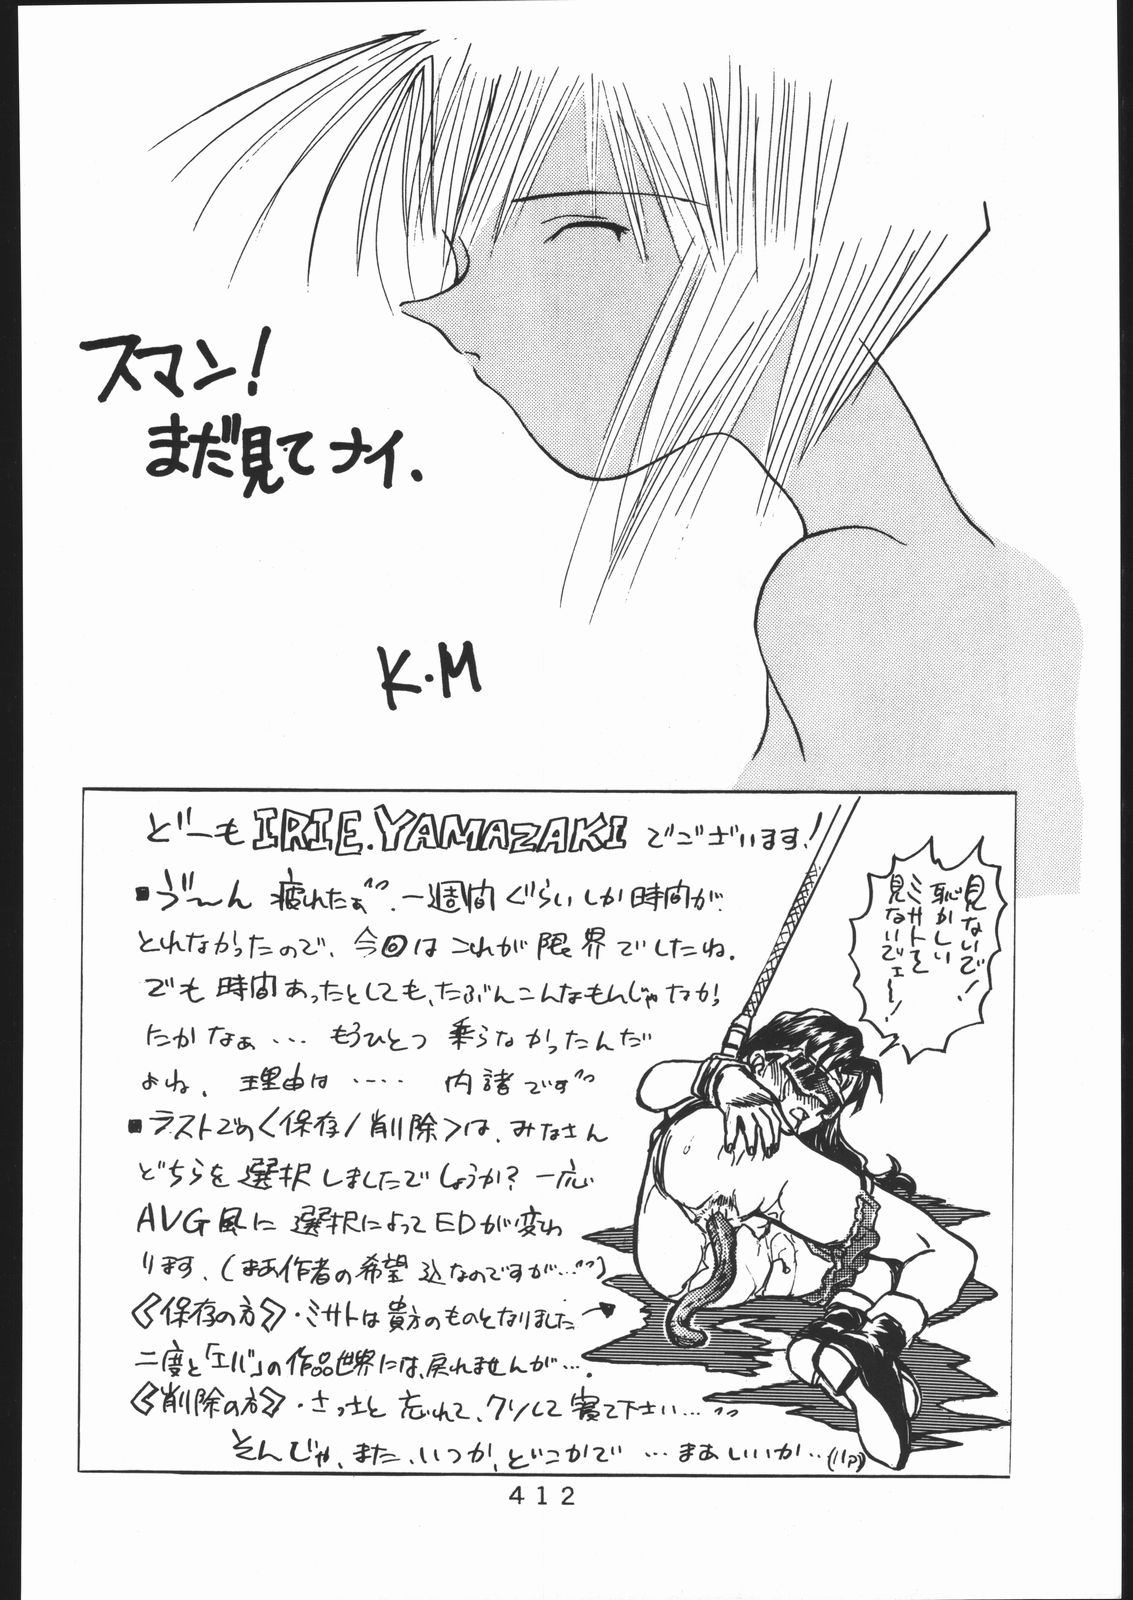 スマン!
まだ見てナイ.
K.M
どーも IRIE.YAMAZAKI でございます!
見ないで!
恥かしい
ミサトを
見ないでェ〜!
■ゔ〜ん 疲れたぁ〃. 一週間ぐらいしか時間が
とれなかったので、今回はこれが限界でしたね.
でも時間あったとしても、たぶんこんなもんじゃなかっ
たかなぁ… もうひとつ 乗らなかったんだ
よね. 理由は ‥‥ 内諸です〃
■ラストでの〈保存/削除〉は、みなさん
どちらを選択しましたでしょうか? 一応
AVG風に 選択によってEDが変わ
ります. (まあ作者の希望込なのですが…〃)
《保存の方》・ミサトは貴方のものとなりました
二度と「エバ」の作品世界には、戻れませんが….
《削除の方》・さっさと 忘れて、クソして 寝て下さい…〃
そんじゃ、また、いつか、どこかで …まあいいか‥
412